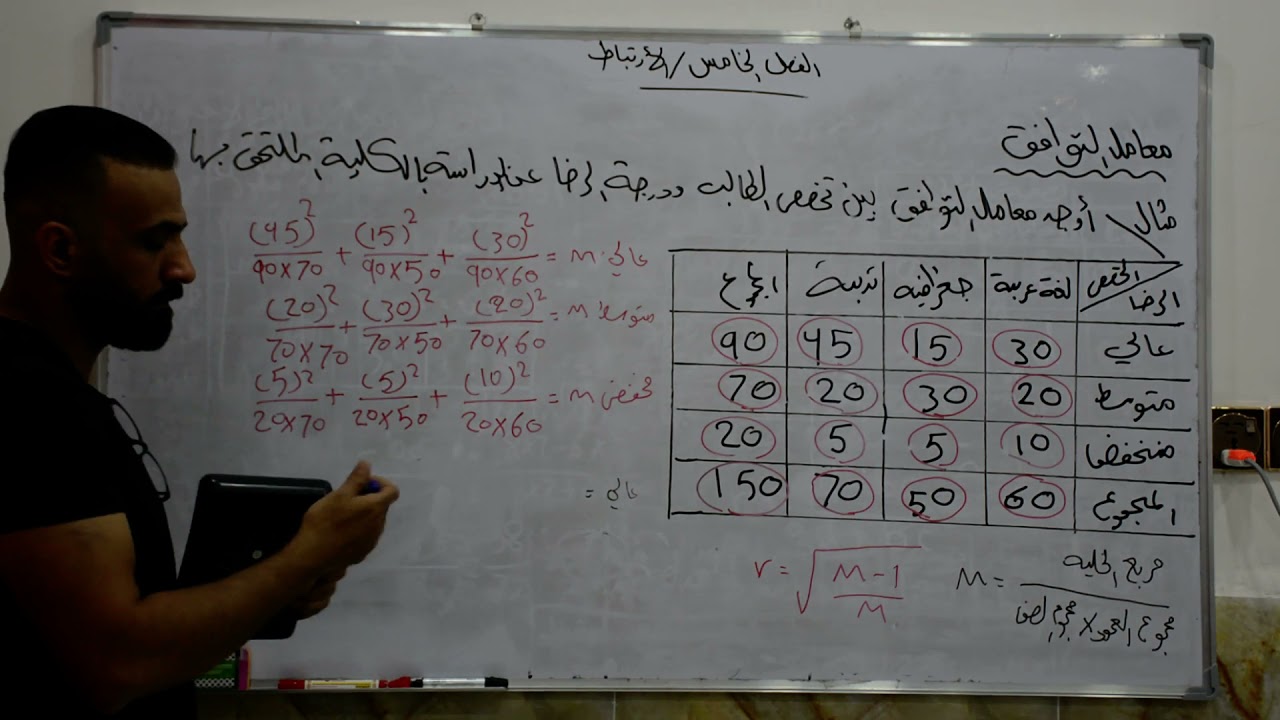 الفصل الخامس / الارتباط
معامل التوافق
مثال / أوجد معامل التوافق بين تخصص الطالب ودرجة الرضا عن الدراسة بالكلية الملتحق بها
التخصص / الرضا | لغة عربية | جغرافية | تربية | المجموع
عالي | 30 | 15 | 45 | 90
متوسط | 20 | 30 | 20 | 70
منخفض | 10 | 5 | 5 | 20
المجموع | 60 | 50 | 70 | 150
عالي M = (30)²/90×60 + (15)²/90×50 + (45)²/90×70
متوسط M = (20)²/70×60 + (30)²/70×50 + (20)²/70×70
منخفض M = (10)²/20×60 + (5)²/20×50 + (5)²/20×70
عالي =
M = مربع الخلية / مجموع العمود × مجموع الصف
r = √(M-1/M)